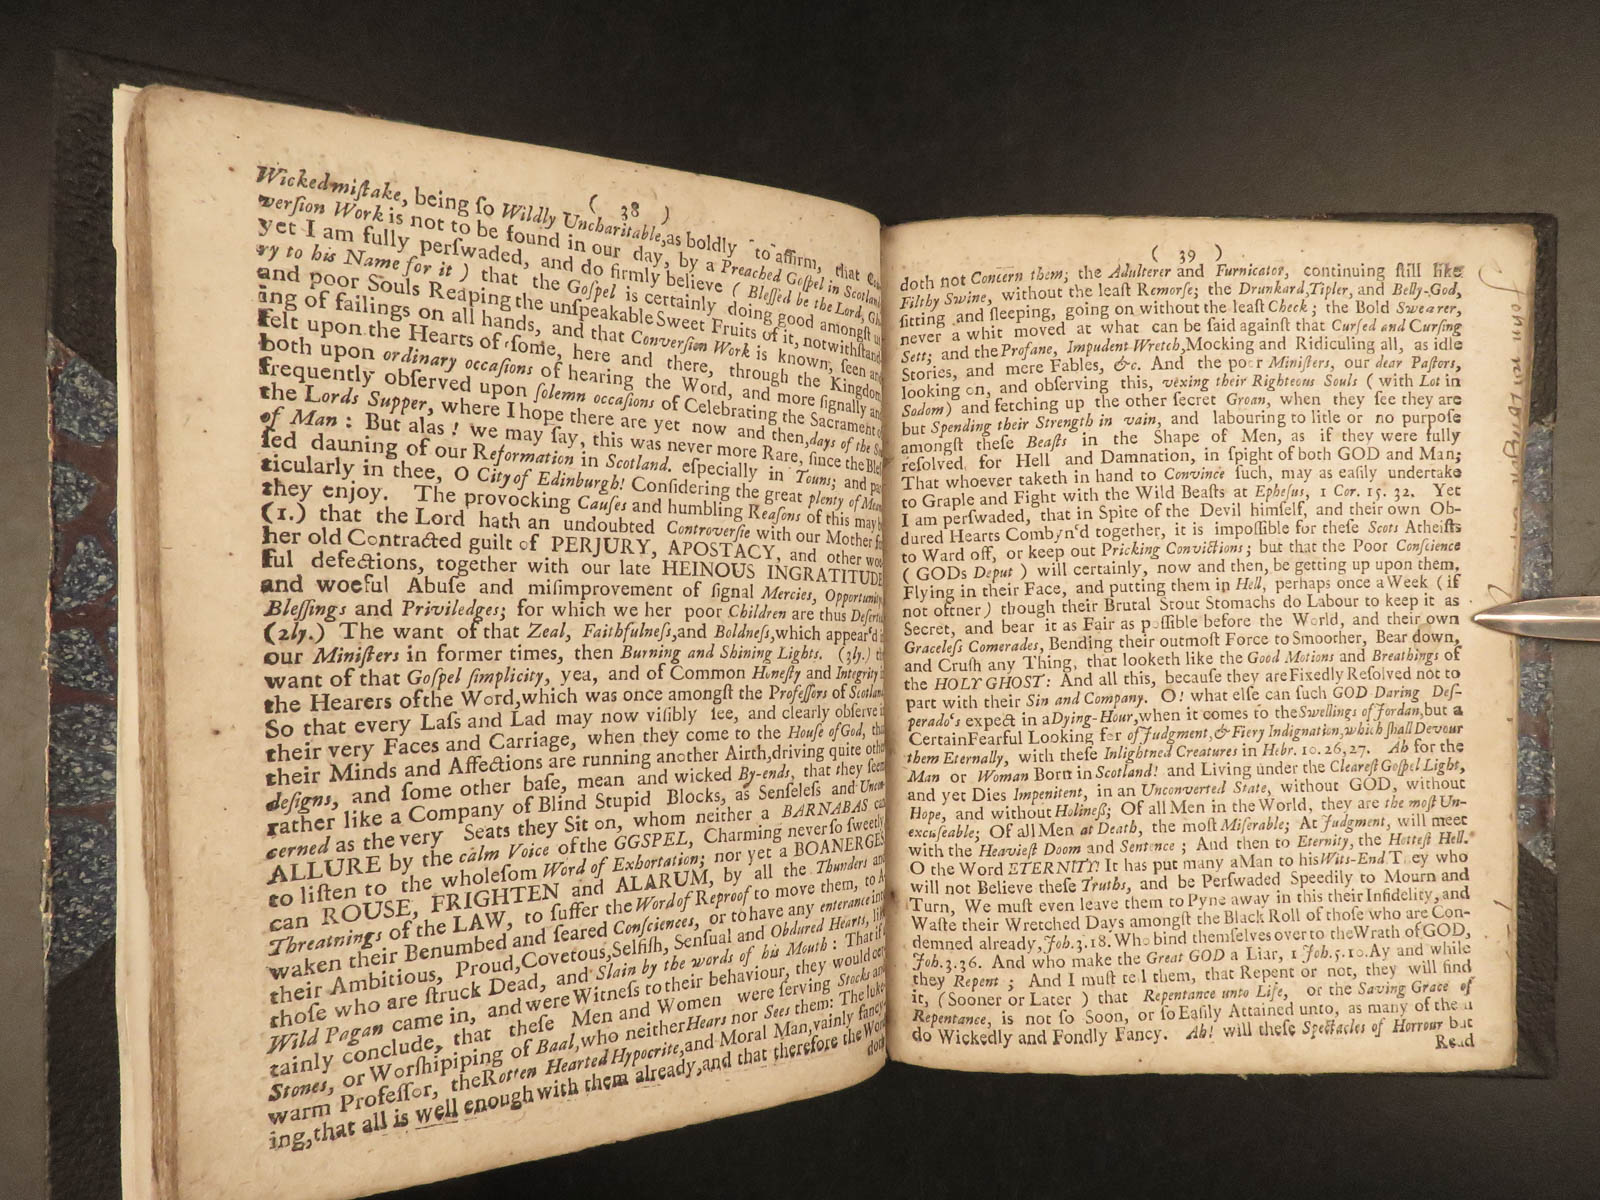 ( 38 )
Wicked miſtake, being ſo Wildly Uncharitable, as boldly to affirm, that
verſion Work is not to be found in our day, by a Preached Goſpel in Scotland
yet I am fully perſwaded, and do firmly believe ( Bleſſed be the Lord,
ry to his Name for it ) that the Goſpel is certainly doing good amongſt us
and poor Souls Reaping the unſpeakable Sweet Fruits of it, notwithſtand
ing of failings on all hands, and that Converſion Work is known, ſeen and
felt upon the Hearts of ſome, here and there, through the Kingdom
both upon ordinary occaſions of hearing the Word, and more ſignally and
frequently obſerved upon ſolemn occaſions of Celebrating the Sacrament of
the Lords Supper, where I hope there are yet now and then, days of the Son
of Man : But alas ! we may ſay, this was never more Rare, ſince the Bleſ
ſed dauning of our Reformation in Scotland. eſpecially in Touns; and par
ticularly in thee, O City of Edinburgh! Conſidering the great plenty of Means
they enjoy. The provocking Cauſes and humbling Reaſons of this may be
(1.) that the Lord hath an undoubted Controverſie with our Mother for
her old Contracted guilt of PERJURY, APOSTACY, and other woe
ful defections, together with our late HEINOUS INGRATITUDE
and woeful Abuſe and miſimprovement of ſignal Mercies, Opportunity,
Bleſſings and Priviledges; for which we her poor Children are thus
(2ly.) The want of that Zeal, Faithfulneſs, and Boldneſs, which appear'd in
our Miniſters in former times, then Burning and Shining Lights. (3ly.) the
want of that Goſpel ſimplicity, yea, and of Common Honeſty and Integrity in
the Hearers of the Word, which was once amongſt the Profeſſors of Scotland
So that every Laſs and Lad may now viſibly ſee, and clearly obſerve in
their very Faces and Carriage, when they come to the Houſe of God, that
their Minds and Affections are running another Airth, driving quite other
deſigns, and ſome other baſe, mean and wicked By-ends, that they ſeem
rather like a Company of Blind Stupid Blocks, as Senſeleſs and Uncon
cerned as the very Seats they Sit on, whom neither a BARNABAS can
ALLURE by the calm Voice of the GGSPEL, Charming never ſo ſweetly
to liſten to the wholeſom Word of Exhortation; nor yet a BOANERGES
can ROUSE, FRIGHTEN and ALARUM, by all the Thunders and
Threatnings of the LAW, to ſuffer the Word of Reproof to move them, to A
waken their Benumbed and ſeared Conſciences, or to have any enterance into
their Ambitious, Proud, Covetous, Selfiſh, Senſual and Obdured Hearts, like
thoſe who are ſtruck Dead, and Slain by the words of his Mouth : That if a
Wild Pagan came in, and were Witneſs to their behaviour, they would cer
tainly conclude, that theſe Men and Women were ſerving Stocks and
Stones, or Worſhipiping of Baal, who neither Hears nor Sees them: The luke
warm Profeſſor, the Rotten Hearted Hypocrite, and Moral Man, vainly fancy
ing, that all is well enough with them already, and that therefore the Word
doth
( 39 )
doth not Concern them; the Adulterer and Furnicator, continuing ſtill like
Filthy Swine, without the leaſt Remorſe; the Drunkard, Tipler, and Belly-God,
ſitting and ſleeping, going on without the leaſt Check ; the Bold Swearer,
never a whit moved at what can be ſaid againſt that Curſed and Curſing
Sett; and the Profane, Impudent Wretch, Mocking and Ridiculing all, as idle
Stories, and mere Fables, &c. And the poor Miniſters, our dear Paſtors,
looking on, and obſerving this, vexing their Righteous Souls ( with Lot in
Sodom) and fetching up the other ſecret Groan, when they ſee they are
but Spending their Strength in vain, and labouring to litle or no purpoſe
amongſt theſe Beaſts in the Shape of Men, as if they were fully
reſolved for Hell and Damnation, in ſpight of both GOD and Man;
That whoever taketh in hand to Convince ſuch, may as eaſily undertake
to Graple and Fight with the Wild Beaſts at Epheſus, 1 Cor. 15. 32. Yet
I am perſwaded, that in Spite of the Devil himſelf, and their own Ob-
dured Hearts Combyn'd together, it is impoſſible for theſe Scots Atheiſts
to Ward off, or keep out Pricking Convictions; but that the Poor Conſcience
( GODs Deput ) will certainly, now and then, be getting up upon them,
Flying in their Face, and putting them in Hell, perhaps once a Week ( if
not oftner ) though their Brutal Stout Stomachs do Labour to keep it as
Secret, and bear it as Fair as poſſible before the World, and their own
Graceleſs Comerades, Bending their outmoſt Force to Smoother, Bear down,
and Cruſh any Thing, that looketh like the Good Motions and Breathings of
the HOLY GHOST: And all this, becauſe they are Fixedly Reſolved not to
part with their Sin and Company. O! what elſe can ſuch GOD Daring Deſ-
perado's expect in a Dying-Hour, when it comes to the Swellings of Jordan, but a
Certain Fearful Looking for of Judgment, & Fiery Indignation, which ſhall Devour
them Eternally, with theſe Inlightned Creatures in Hebr. 10. 26, 27. Ah for the
Man or Woman Born in Scotland! and Living under the Cleareſt Goſpel Light,
and yet Dies Impenitent, in an Unconverted State, without GOD, without
Hope, and without Holineſs; Of all Men in the World, they are the moſt Un-
excuſeable; Of all Men at Death, the moſt Miſerable; At Judgment, will meet
with the Heavieſt Doom and Sentence ; And then to Eternity, the Hotteſt Hell.
O the Word ETERNITY! It has put many a Man to his Wits-End. They who
will not Believe theſe Truths, and be Perſwaded Speedily to Mourn and
Turn, We muſt even leave them to Pyne away in this their Infidelity, and
Waſte their Wretched Days amongſt the Black Roll of thoſe who are Con-
demned already, Joh. 3. 18. Who bind themſelves over to the Wrath of GOD,
Joh. 3. 36. And who make the Great GOD a Liar, 1 Joh. 5. 10. Ay and while
they Repent ; And I muſt tell them, that Repent or not, they will find
it, (Sooner or Later ) that Repentance unto Life, or the Saving Grace of
Repentance, is not ſo Soon, or ſo Eaſily Attained unto, as many of them
do Wickedly and Fondly Fancy. Ah! will theſe Spectacles of Horrour but
Read